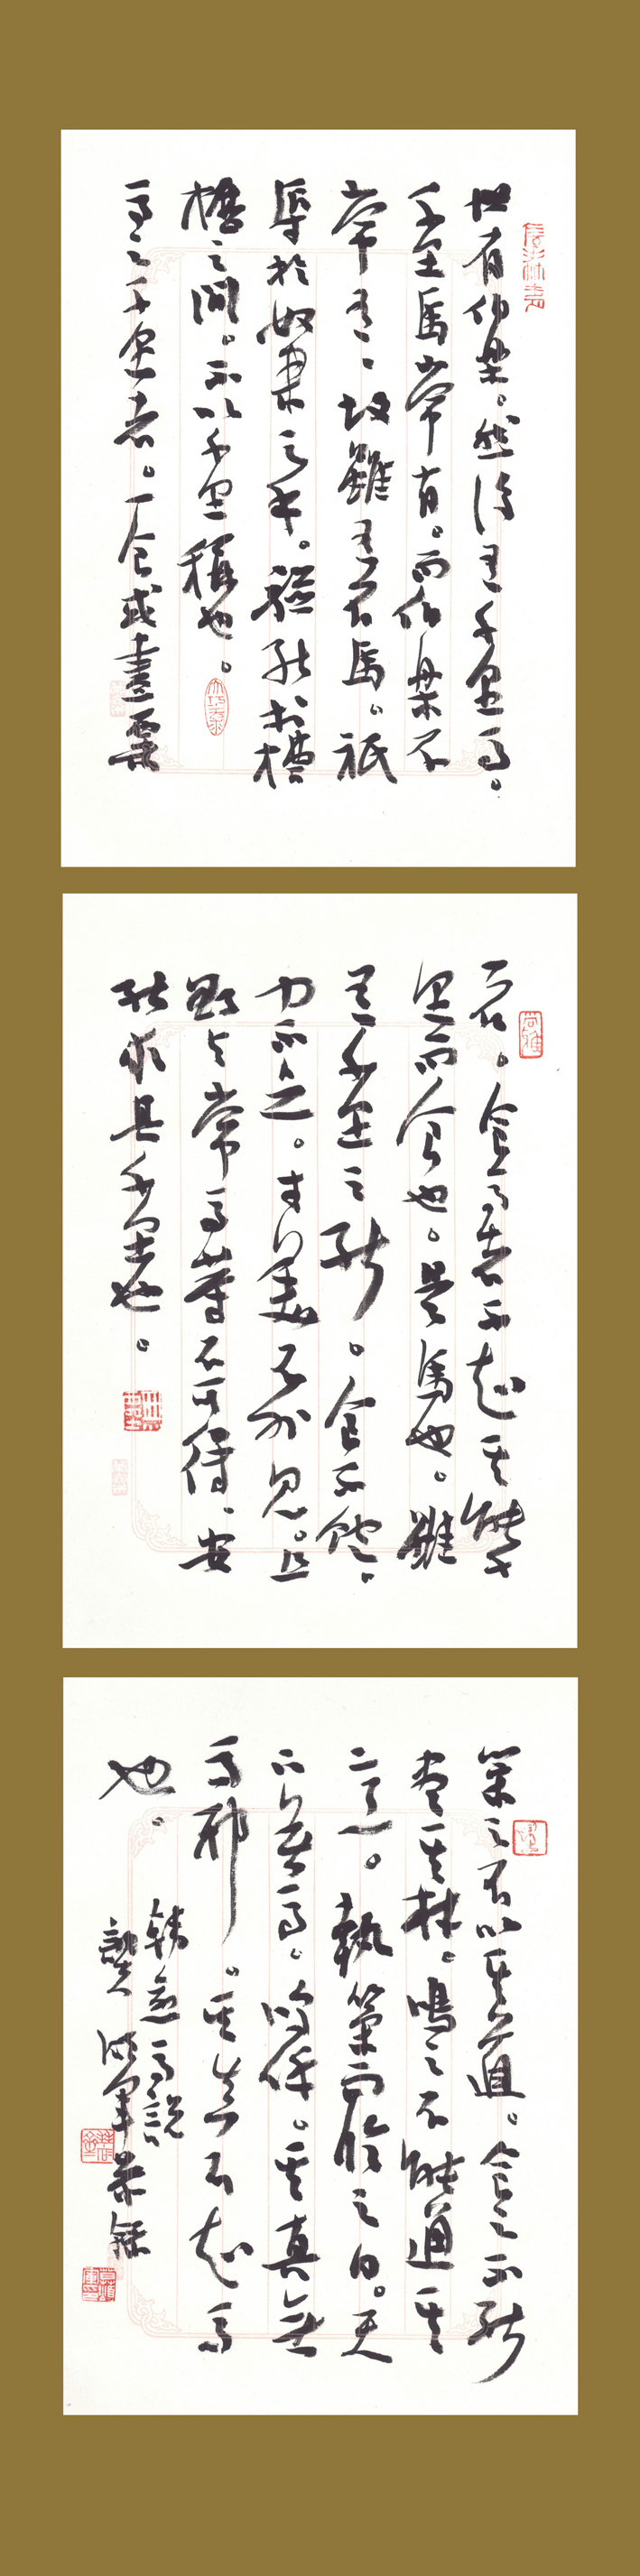 世有伯樂。然後有千里馬。
千里馬常有。而伯樂不
常有、故雖有名馬。祇
辱於奴隸之手。駢死於槽
櫪之間。不以千里稱也。
馬之千里者。一食或盡粟
一石。食馬者不知其能千
里而食也。是馬也。雖
有千里之能。食不飽、
力不足。才美不外見。且
欲與常馬等不可得、安
能求其千里也。
策之不以其道。食之不能
盡其材。鳴之不能通其
意。執策而臨之曰。天
下無馬。嗚呼。其真無
馬邪。其真不知馬
也。
韓愈馬說